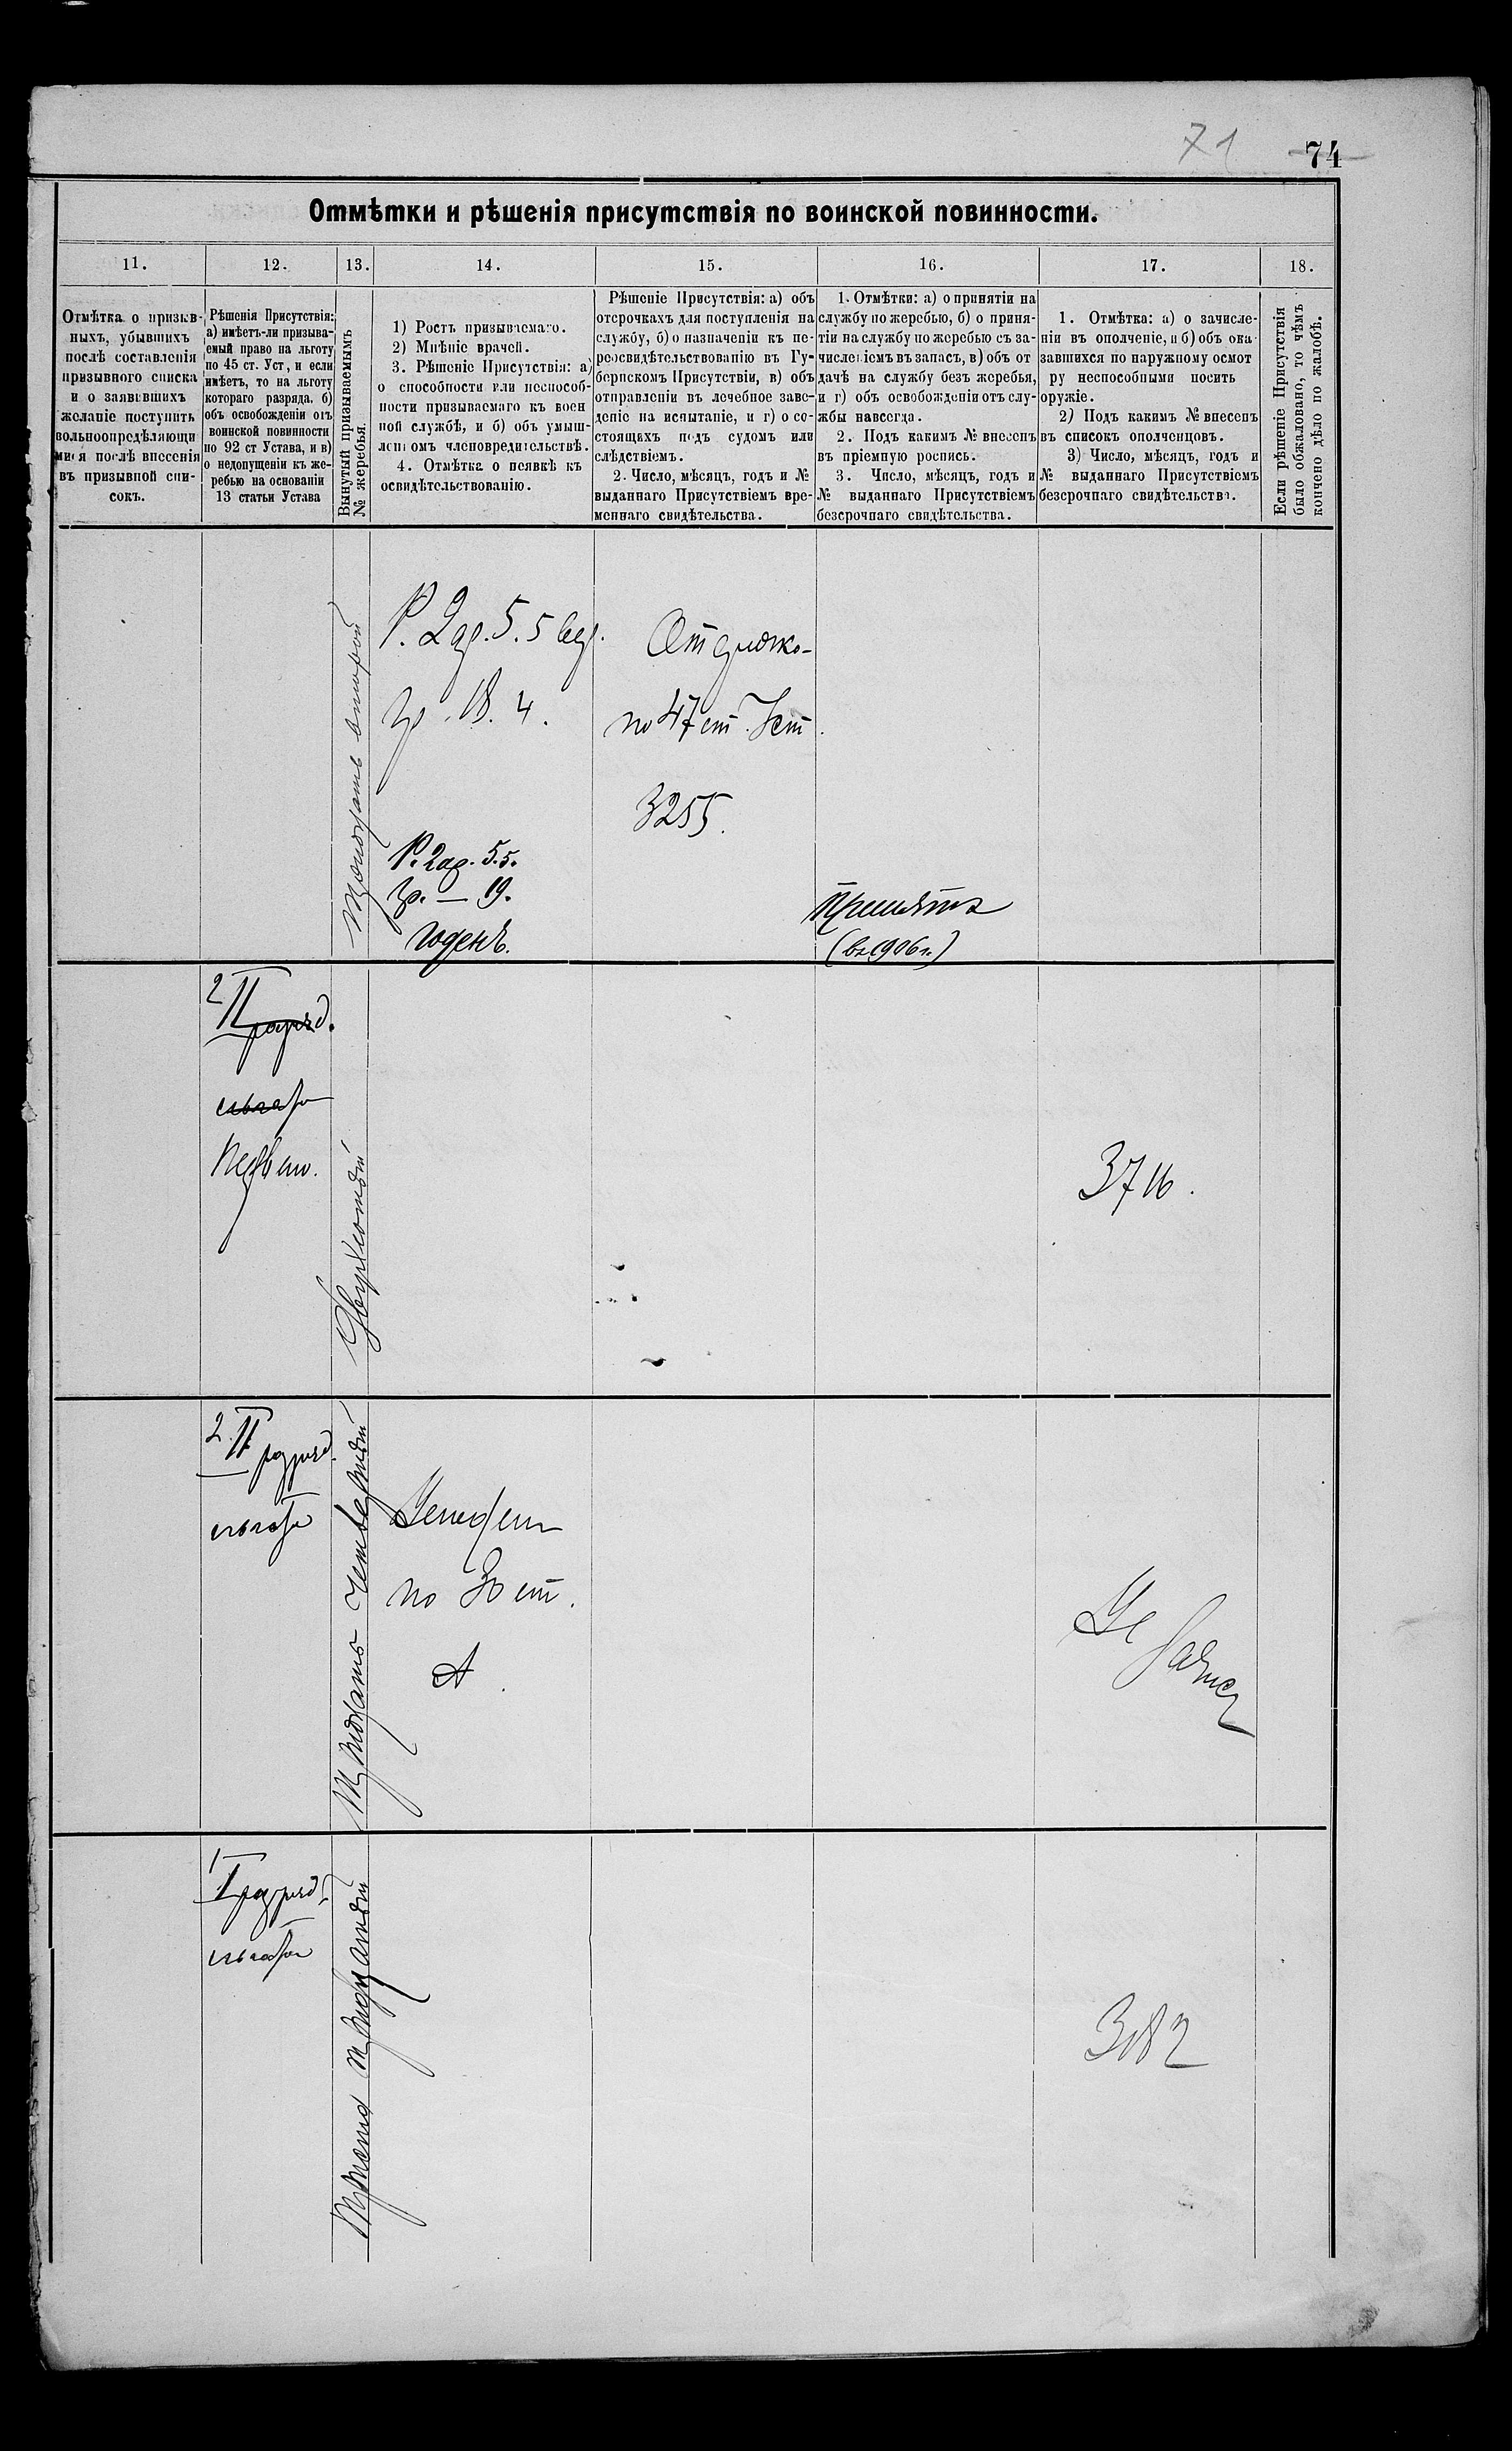 71
74
Отмѣтки и рѣшенія присутствія по воинской повинности.
11.
12.
13.
14.
15.
16.
17.
18.
Отмѣтка о призыв-
ныхъ, убывшихъ
послѣ составленія
призывного списка
и о заявившихъ
желаніе поступить
вольноопредѣляющи
мися послѣ внесенія
въ призывной спи-
сокъ.
Рѣшенія Присутствія:
а) имѣетъ-ли призыва-
емый право на льготу
по 45 ст. Уст, и если
имѣетъ, то на льготу
котораго разряда, б)
объ освобожденіи отъ
воинской повинности
по 92 ст Устава, и в)
о недопущеніи къ же-
ребью на основаніи
13 статьи Устава
Вынутый призываемымъ
№ жеребья.
1) Ростъ призываемаго.
2) Мнѣніе врачей.
3. Рѣшеніе Присутствія: а)
о способности или неспособ-
ности призываемаго къ воен
ной службѣ, и б) объ умыш-
леномъ членовредительствѣ.
4. Отмѣтка о неявкѣ къ
освидѣтельствованію.
Рѣшеніе Присутствія: а) объ
отсрочкахъ для поступленія на
службу, б) о назначеніи къ пе-
реосвидѣтельствованію въ Гу-
бернскомъ Присутствіи, в) объ
отправленіи въ лечебное заве-
деніе на испытаніе, и г) о со-
стоящихъ подъ судомъ или
слѣдствіемъ.
2. Число, мѣсяцъ, годъ и №
выданнаго Присутствіемъ вре-
меннаго свидѣтельства.
1. Отмѣтки: а) о принятіи на
службу по жеребью, б) о приня-
тіи на службу по жеребью съ за-
численіемъ въ запасъ, в) объ от
дачѣ на службу безъ жеребья,
и г) объ освобожденіи отъ слу-
жбы навсегда.
2. Подъ какимъ № внесенъ
въ пріемную роспись.
3. Число, мѣсяцъ, годъ и
№ выданнаго Присутствіемъ
безсрочнаго свидѣтельства.
1. Отмѣтка: а) о зачисле-
ніи въ ополченіе, и б) объ ока
завшихся по наружному осмот
ру неспособными носить
оружіе.
2) Подъ какимъ № внесенъ
въ списокъ ополченцовъ.
3) Число, мѣсяцъ, годъ и
№ выданнаго Присутствіемъ
безсрочнаго свидѣтельства.
Если рѣшеніе Присутствія
было обжаловано, то чѣмъ
кончено дѣло по жалобѣ.
Тридцать второй
Р. 2 ар. 5. 5 вер.
гр. 18. 4.
Р. 2 ар. 5. 5.
гр. — 19.
годенъ.
Отсрочка
по 47 ст. Уст.
3255.
Принятъ
(въ 1906 г.)
2 II разряд.
льгота
Двухсотый
3716.
2 II разряд.
льгота
Тридцать четвертый
по 30 ст.
А.
1 I разряд.
льгота
Триста тридцатый
3182